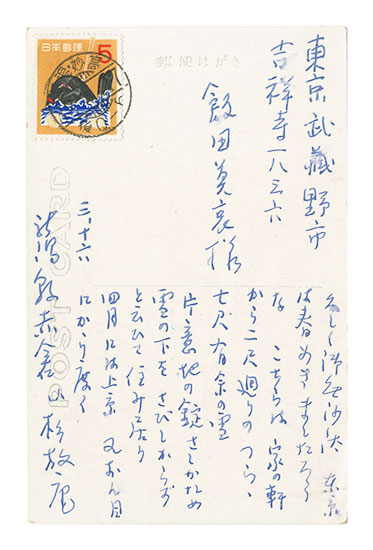 東京武蔵野市
吉祥寺一八三六
飯田莫哀様
郵便はがき
日本郵便
5
POST CARD
三、十六
赤倉山 杉放庵
久しく御無沙汰 東京
は春めきましたろう
な こちらは家の軒
から二尺廻りのつらゝ
七尺有余の雪
片意地の錠さしかため
雪の下をさびしからず
と云ひて住み居り
四月には上京 又お目
にかゝり度く